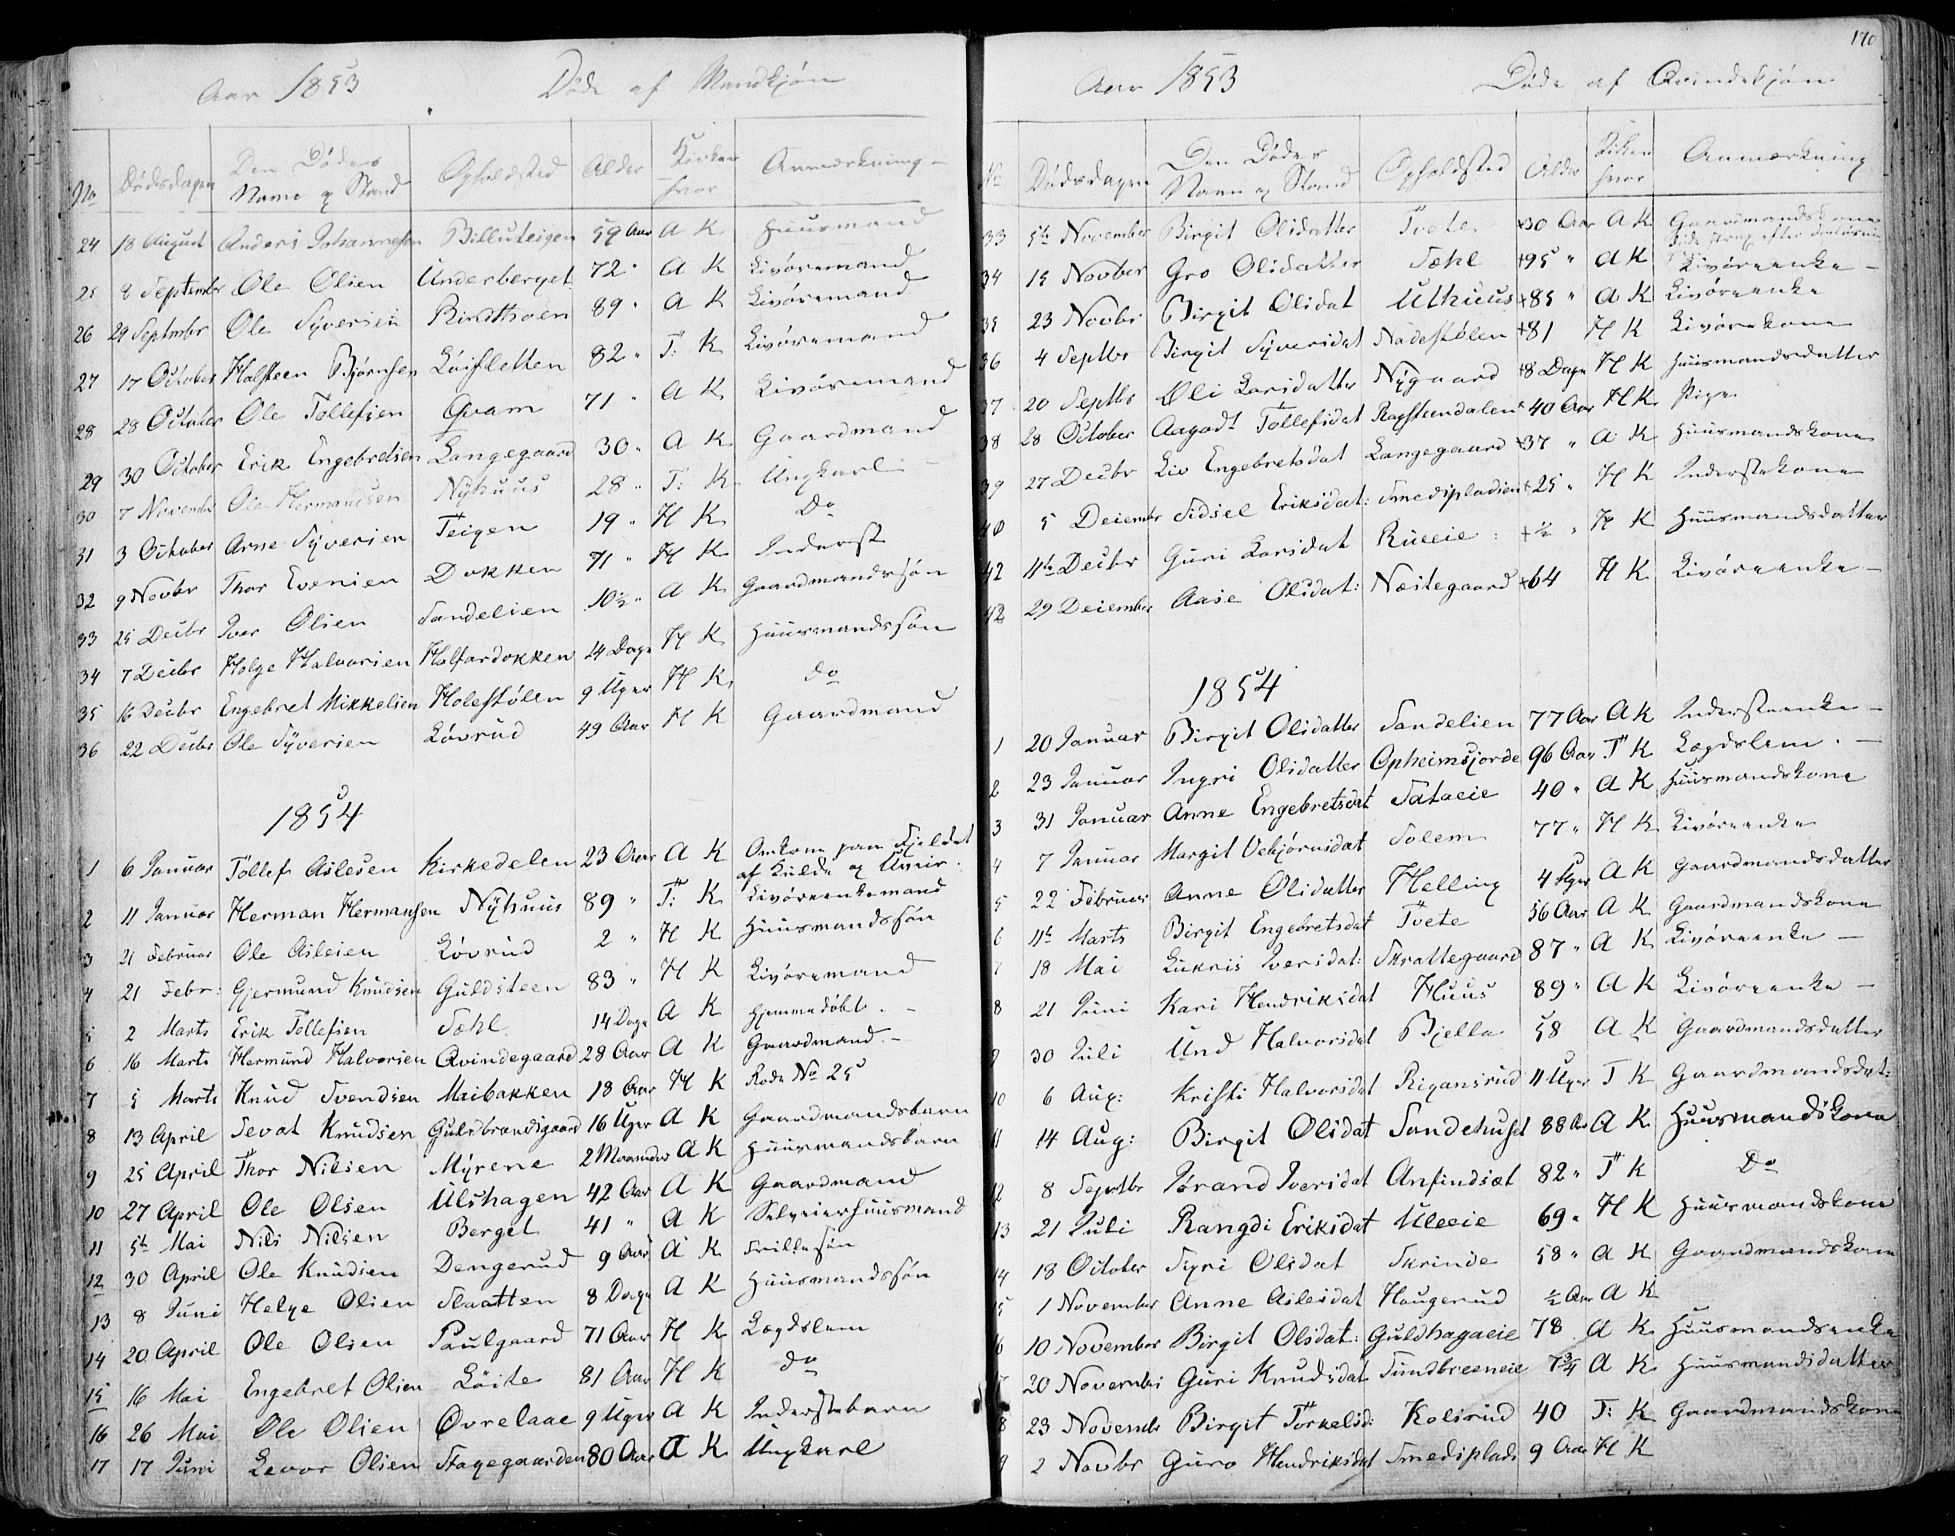 Aar 1853 Døde af Mandkjøn
No Dødsdagen Den Dødes Navn og Stand Opholdsted Alder Kirken hvor Anmærkning
24 18 August Anders Johannesen Billuteigen 59 Aar A K Huusmand
25 8 Septembr Ole Olsen Underberget 72 " A K Livøremand
26 29 Septmbr Ole Syversen Rindthoen 89 " A K Livøremand
27 17 October Halsteen Bjørnsen Løisletten 82 " T: K Livøremand
28 28 October Ole Tollefsen Qvam 71 " A K Livøremand
29 30 October Erik Engebretsen Langegaard 30 " A K Gaardmand
30 7 November Ole Hermansen Nÿhuus 28 " T: K Ungkarl
31 3 October Arne Syversen Teigen 19 " H K Do
32 9 Novbr Thor Evensen Dokken 71 " H K Inderst
33 25 Decbr Iver Olsen Sandelien 10½ " A K Gaardmandssøn
34 7 Decbr Holge Halvorsen Halfardokken 14 Dage H K Huusmandssøn
35 16 Decbr Engebret Mikkelsen Holestølen 9 Uger H K do
36 22 Decbr Ole Syversen Løvrud 49 Aar H K Gaardmand
1854
1 6 Januar Tollef Aslesen Kirkedelen 23 Aar A K Omkom paa Fjeldet
af Kulde og Uveir.
2 11 Januar Herman Hermansen Nÿhuus 89 " T: K Livøreenkemand
3 21 Februar Ole Aslesen Løvrud 2 " H K Huusmandssøn
4 21 Febr: Gjermund Knudsen Guldsteen 83 " H K Livøremand
5 2 Marts Erik Tollefsen Sæhl 14 Dage A K Hjemmedøbt. -
6 16 Marts Hermund Halvorsen Qvindegaard 28 Aar A K Gaardmand. -
7 5 Marts Knud Svendsen Maibakken 18 Aar H K Rode No 25
8 13 April Sevat Knudsen Gulsbrandsgaard 16 Uger A K Gaardmandsbarn
9 25 April Thor Nilsen Myrene 2 Maaneder A K Huusmandsbarn
10 27 April Ole Olsen Ulshagen 42 Aar A K Gaardmand
11 5te Mai Nils Nilsen Berget 41 " A K Selveierhuusmand
12 30 April Ole Knudsen Dengerud 9 Aar A K Frillesøn
13 8 Juni Helge Olsen Slaatten 8 Dage A K Huusmandssøn
14 20 April Ole Olsen Paulgaard 71 Aar H K Lægdslem
15 16 Mai Engebret Olsen Løite 81 Aar H K do
16 26 Mai Ole Olsen Øvrelaae 9 Uger A K Inderstebarn
17 17 Juni Levor Olsen Stagegaarden 80 Aar A K Ungkarl
170
Aar 1853 Døde af Qvindekjøn
No Dødsdagen Den Dødes Navn og Stand Opholdsted Alder Kirken hvor Anmærkning
33 5te November Birgit Olsdatter Tvete +30 Aar A K Gaardmandskone
død strax efter
34 15 Novber Gro Olsdatter Sæhl +95 " A K Livøreenke -
35 23 Novbr Birgit Olsdat Uthuus +85 " A K Livøreenke
36 4 Septbr Birgit Syversdat Nadestølen +81 H K Livørekone
37 20 Septbr Øli Larsdatter Nygaard +8 Dage H K Huusmandsdatter
38 28 October Aagodt Tollefsdat Rogsteendalen +40 Aar H K Pige
39 27 Decbr Liv Engebretsdat Langegaard +37 " A K Huusmandskone
40 5 Decembr Sidsel Eriksdat: Smedspladsen +25 " H K Inderstekone
42 11te Decbr Guri Larsdat Rueeie : +½ " H K Huusmandsdatter
42 29 December Aase Olsdat: Næstegaard +64 H K Livøreenke -
1854
1 20 Januar Birgit Olsdatter Sandelien 77 Aar A K Inderstenke -
2 23 Januar Ingri Olsdatter Opheimsjorde 96 Aar T K Lægdslem. -
3 31 Januar Anne Engebretsdat Sataeie 40 " A K Huusmandskone
4 7 Januar Margit Vebjørnsdat Solem 77 " H K Livøreenke
5 22 Februar Anne Olsdatter Helling 4 Uger A K Gaardmandsdatter
6 11te Marts Birgit Engebretsdat Tvete 36 Aar A K Gaardmandskone
7 18 Mai Lukris Iversdat: Skrattegaard 87 " A K Livøreenke -
8 21 Juni Kari Hendriksdat Huus 89 " A K Livøreenke -
9 30 Juli Und Halvorsdat Bjella 58 A K Gaardmandsdatter
10 6 Aug: Kristi Halvorsdat Rigansrud 11 Uger T K Gaardmandsdat:
11 14 Aug: Birgit Olsdat Sandehuset 88 Aar A K Huusmandskone
12 8 Septbr Jørand Iversdat Anfindsæt 82 " T K Do
13 21 Juli Rangdi Eriksdat Uleeie 69 " H K Huusmandskone
14 18 October Sigri Olsdat Skrinde 58 " A K Gaardmandskone
15 1 November Anne Aslesdat Haugerud ½ Aar A K
6 10 November Birgit Olsdat: Guldhagaeie 78 A K Huusmandsenke
7 20 Novembr Guri Knudsdat Sundbreeneie 7¾ A K Huusmandsdatter
8 23 Novembr Birgit Torkelsd: Kolsrud 40 T: K Gaardmandskone
9 2 Novbr Guro Hendriksdat Smedsplads 9 Aar H K